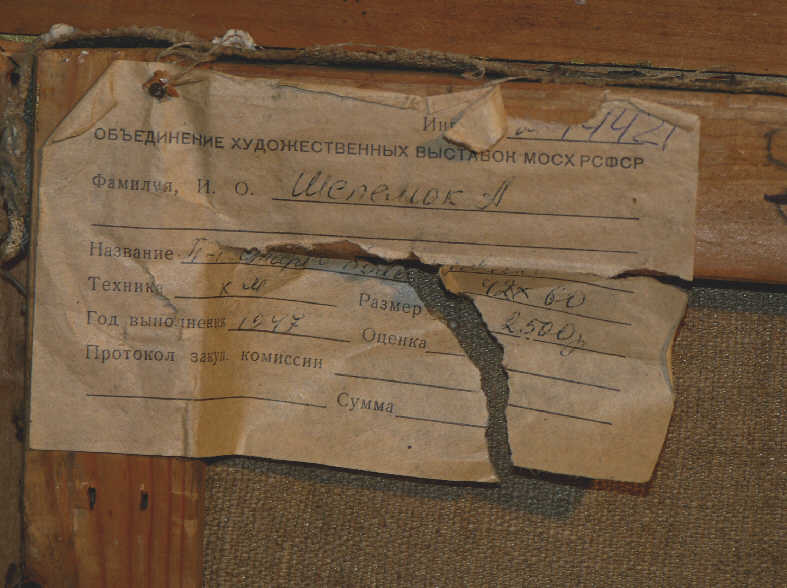 Ин 14421
ОБЪЕДИНЕНИЕ ХУДОЖЕСТВЕННЫХ ВЫСТАВОК МОСХ РСФСР
Фамилия, И. О. Шелемок А
Название
Техника к м Размер 42х 60
Год выполнения 1947 Оценка 2500р
Протокол закуп. комиссии
Сумма